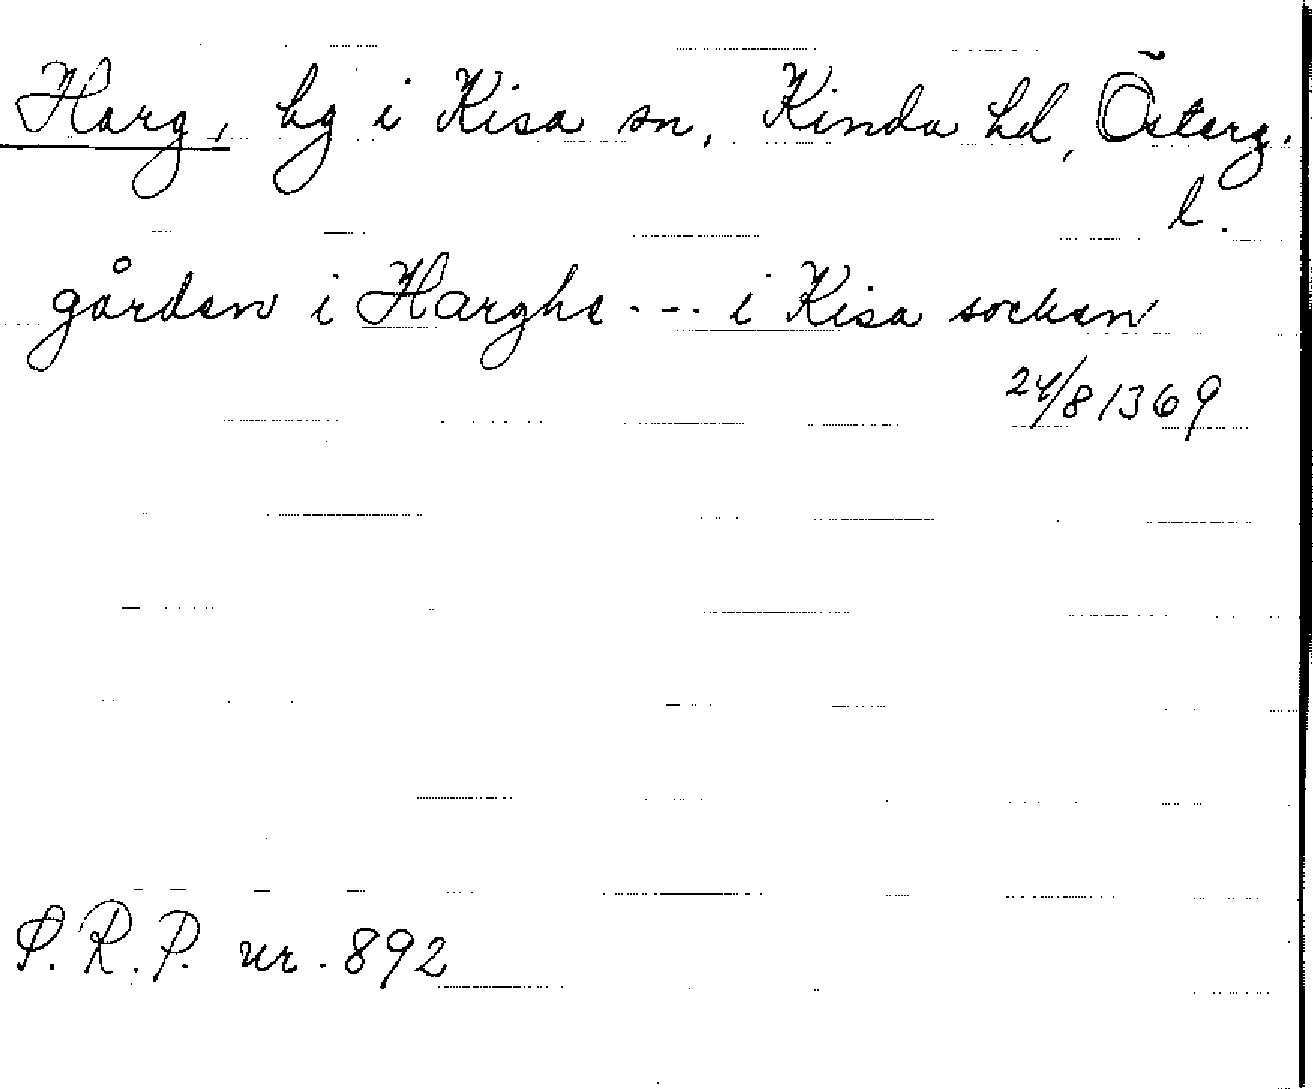 Harg, hg i Kisa sn, Kinda hd, Österg.
l.
gården i Harghe --- i Kisa socken
24/8 1369
S.R.P. nr. 892